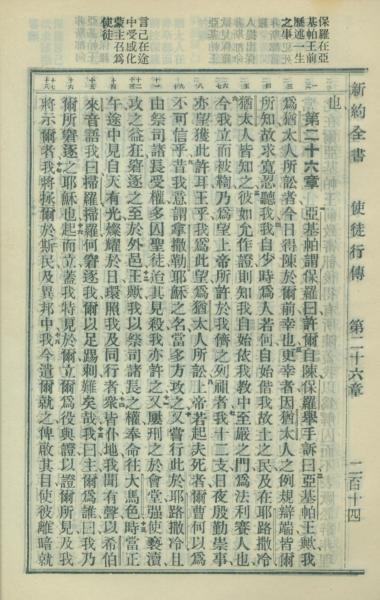 保羅在亞
基帕王前
歷述一生
之事
言己在途
中受感化
蒙主召爲
使徒
新約全書 使徒行傳 第二十六章 二百十四
也
第二十六章 亞基帕謂保羅曰許爾自陳保羅舉手訴曰亞基帕王歟我
爲猶太人所訟者今日得陳於爾前幸也更幸者因猶太人之例規辯端皆爾
所知故求寬忍聽我我自少時爲人若何自始偕我故土之民及在耶路撒冷
猶太人皆知之彼如允作證則知我自始依我教中至嚴之門爲法利賽人也
今我立而被鞫乃爲望上帝所許於我儕之列祖者我十二支日夜殷勤崇事
亦望獲此許耳王乎我爲此望爲猶太人所訟上帝若起夫死者爾曹何以爲
不可信乎昔我意謂拿撒勒耶穌之名當多方攻之又嘗行此於耶路撒冷且
由祭司諸長受權多囚聖徒治其見殺我亦許之又屢刑之於會堂强使褻瀆
攻之益狂窘逐之至於外邑王歟我以祭司諸長之權奉命往大馬色時當正
午途中見自天有光燦耀於日環照我及同行者衆皆仆地我聞有聲以希伯
來音語我曰掃羅掃羅何窘逐我爾以足踢刺難矣哉我曰主爾爲誰曰我乃
爾所窘逐之耶穌也起而立蓋我特見於爾立爾爲役與證以證爾所見及我
將示爾者我將拯爾於斯民及異邦中我今遣爾就之俾啟其目使彼離暗就